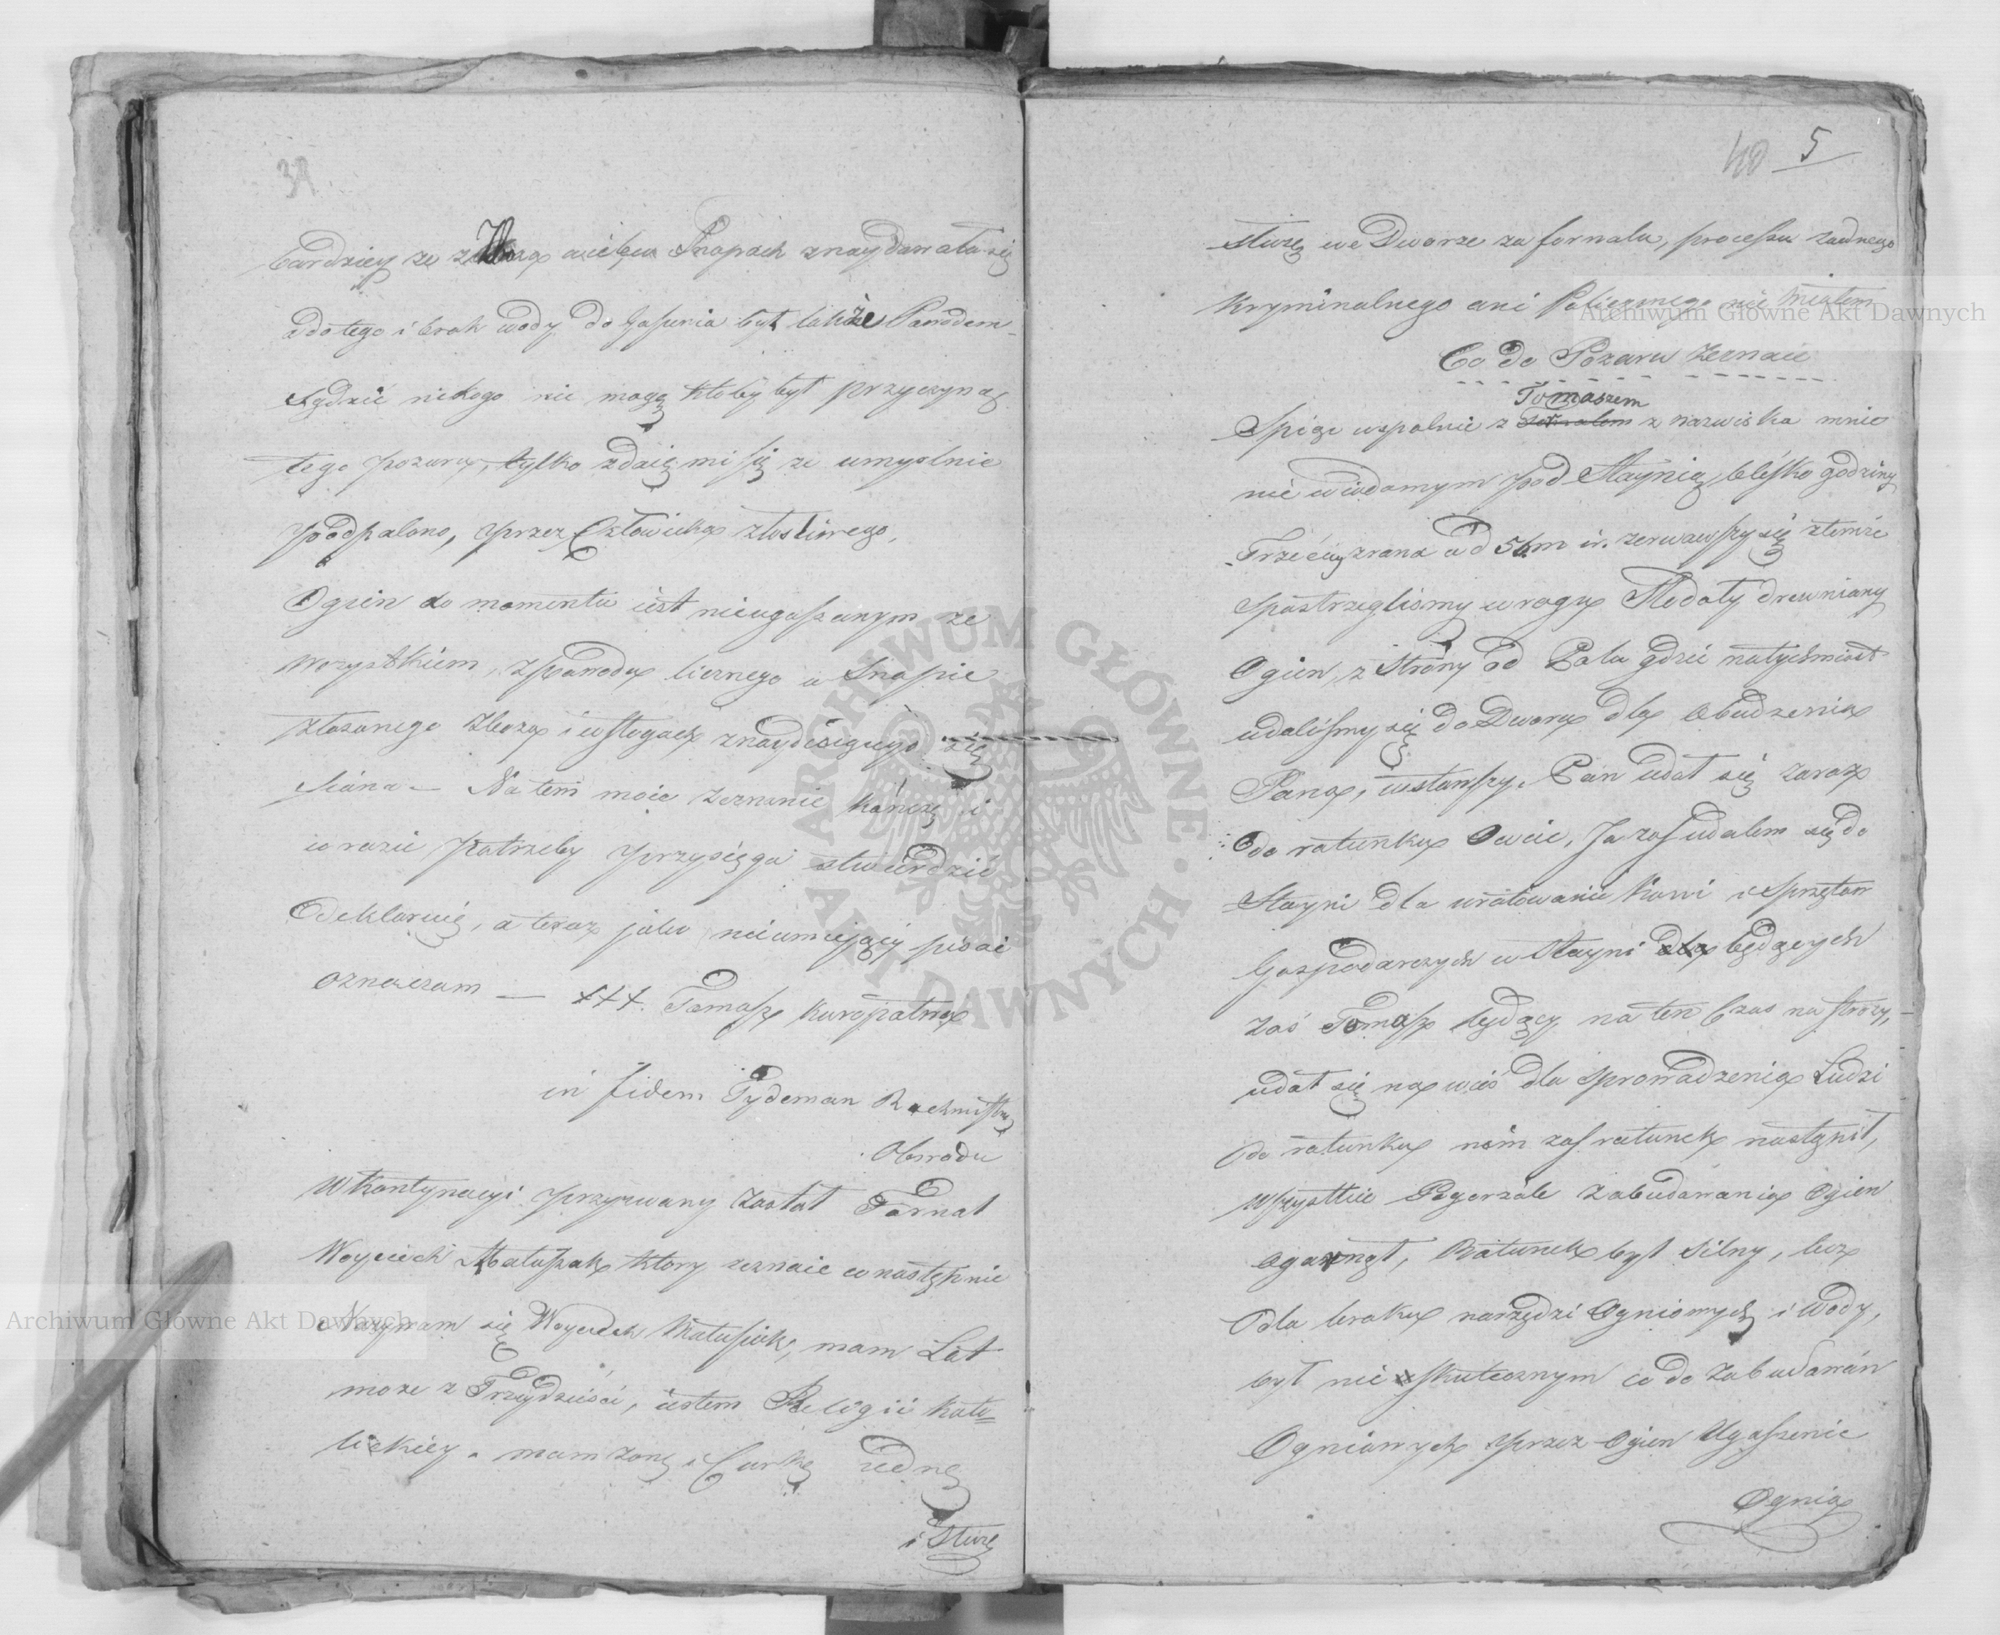 39.
bardziey że Zboża wiele w Snopach znaydowało się
a do tego i brak wody do gaszenia był także Powodem –
sądzić nikogo nie mogę ktoby był przyczyną
tego pożaru, tylko zdaię mi się że umyslnie
podpalono, przez Człowieka złosliwego.
Ogień do momentu iest nieugaszonym ze
wszystkiem, z powodu licznego w Snopie
złożonego Zboża i w stogach znaydującego się
Siana – Na tem moie zeznanie kończę i
w razie potrzeby przysięgą stwierdzić
deklaruię, a teraz jako nieumiejący pisać
oznaczam — +++ Tomasz Kuropatwa
in fidem Tydeman Rachmistrz
Obwodu
W kontynacyi przyzwany został Fornal
Woyciech Matuszak który zeznaie co następnie
Nazywam się Woyciech Matusiak, mam Lat
może z Trzydzieści, iestem Religii kato=
lickiey, mam żonę i Curkę iedną
i Służę
40 5
służę we Dworze za fornala, processu żadnego
Kryminalnego ani Policzynego nie miałem
Co do Pożaru zeznaie
Tomaszem
Spiąc wspolnie z z nazwiska mnie
nie wiadomym pod Staynią, blisko godziny
Trzeciey zrana od 5 b.m. i r. zerwawszy się z temże
spostrzegliśmy w rogu Stodoły drewniany
Ogień, z Strony od Pola gdzie natychmiast
udaliśmy się do Dworu dla obudzenia
Pana, wstawszy, Pan udał się zaraz
do ratunku Owiec, Ja zaś udałem się do
Stayni dla uratowania Koni i Sprzętow
Gospodarczych w Stayni dla będących
zaś Tomasz będący na ten Czas na stroży,
udał się na wieś dla sprowadzenia Ludzi
do ratunku nim zaś ratunek nastąpił,
wszystkie Pogorzałe zabudowania Ogień
ogarnął, Ratunek był silny, lecz
dla braku narzędzi Ogniowych i Wody,
był nie skutecznym co do zabudowań
Ogniowych przez Ogień Ugaszenie
Ognia